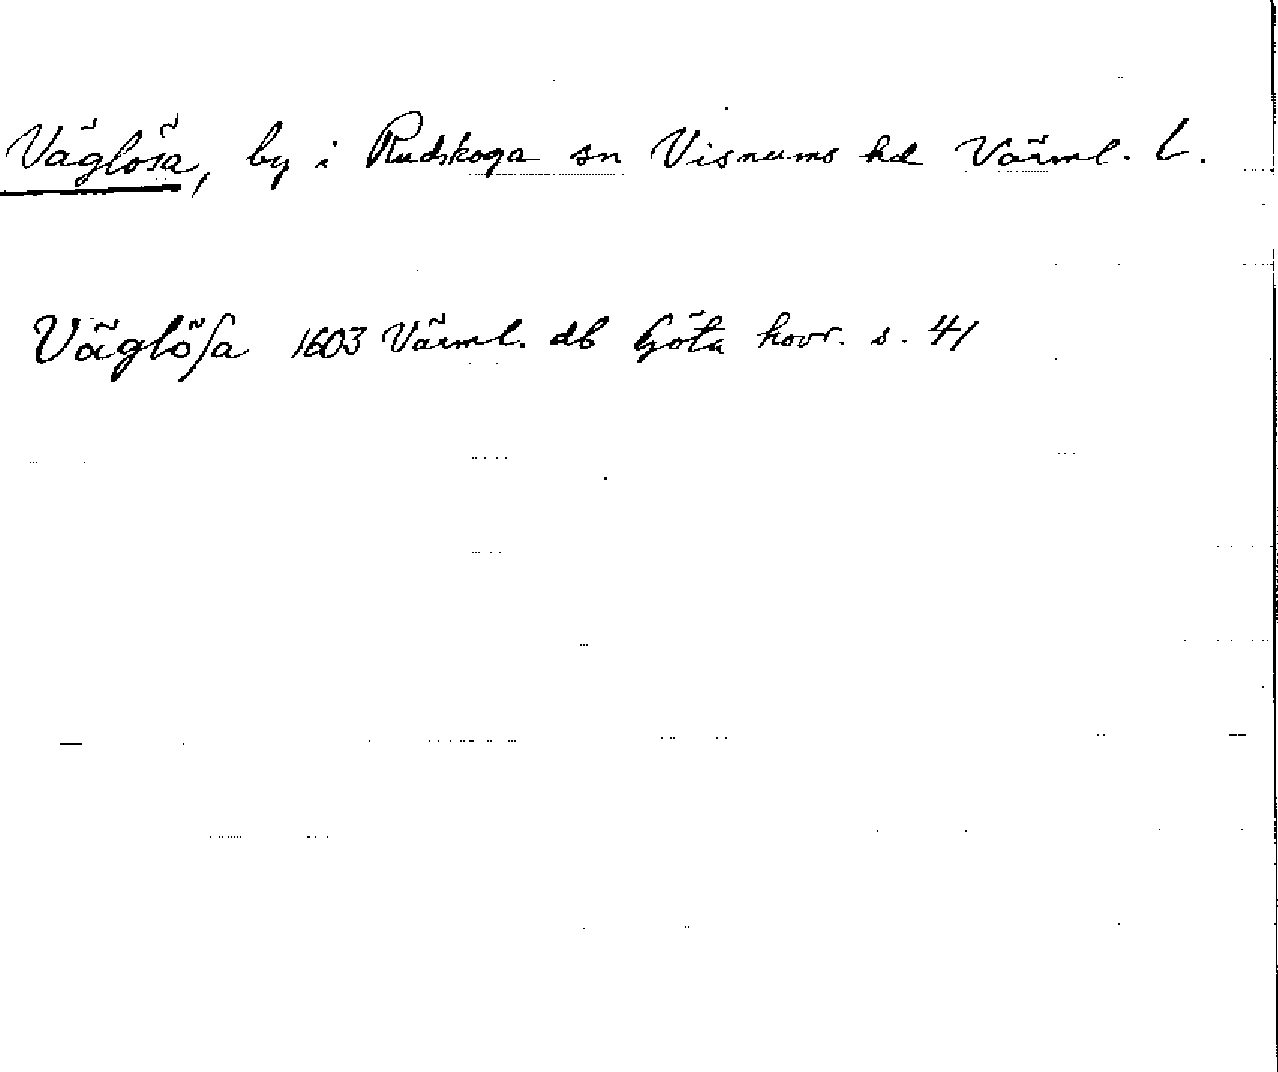 Väglösa, by i Rudskoga sn Visnums hd Värml. L.
Väglöſa 1603 Värml. db Göta hovr. s. 41